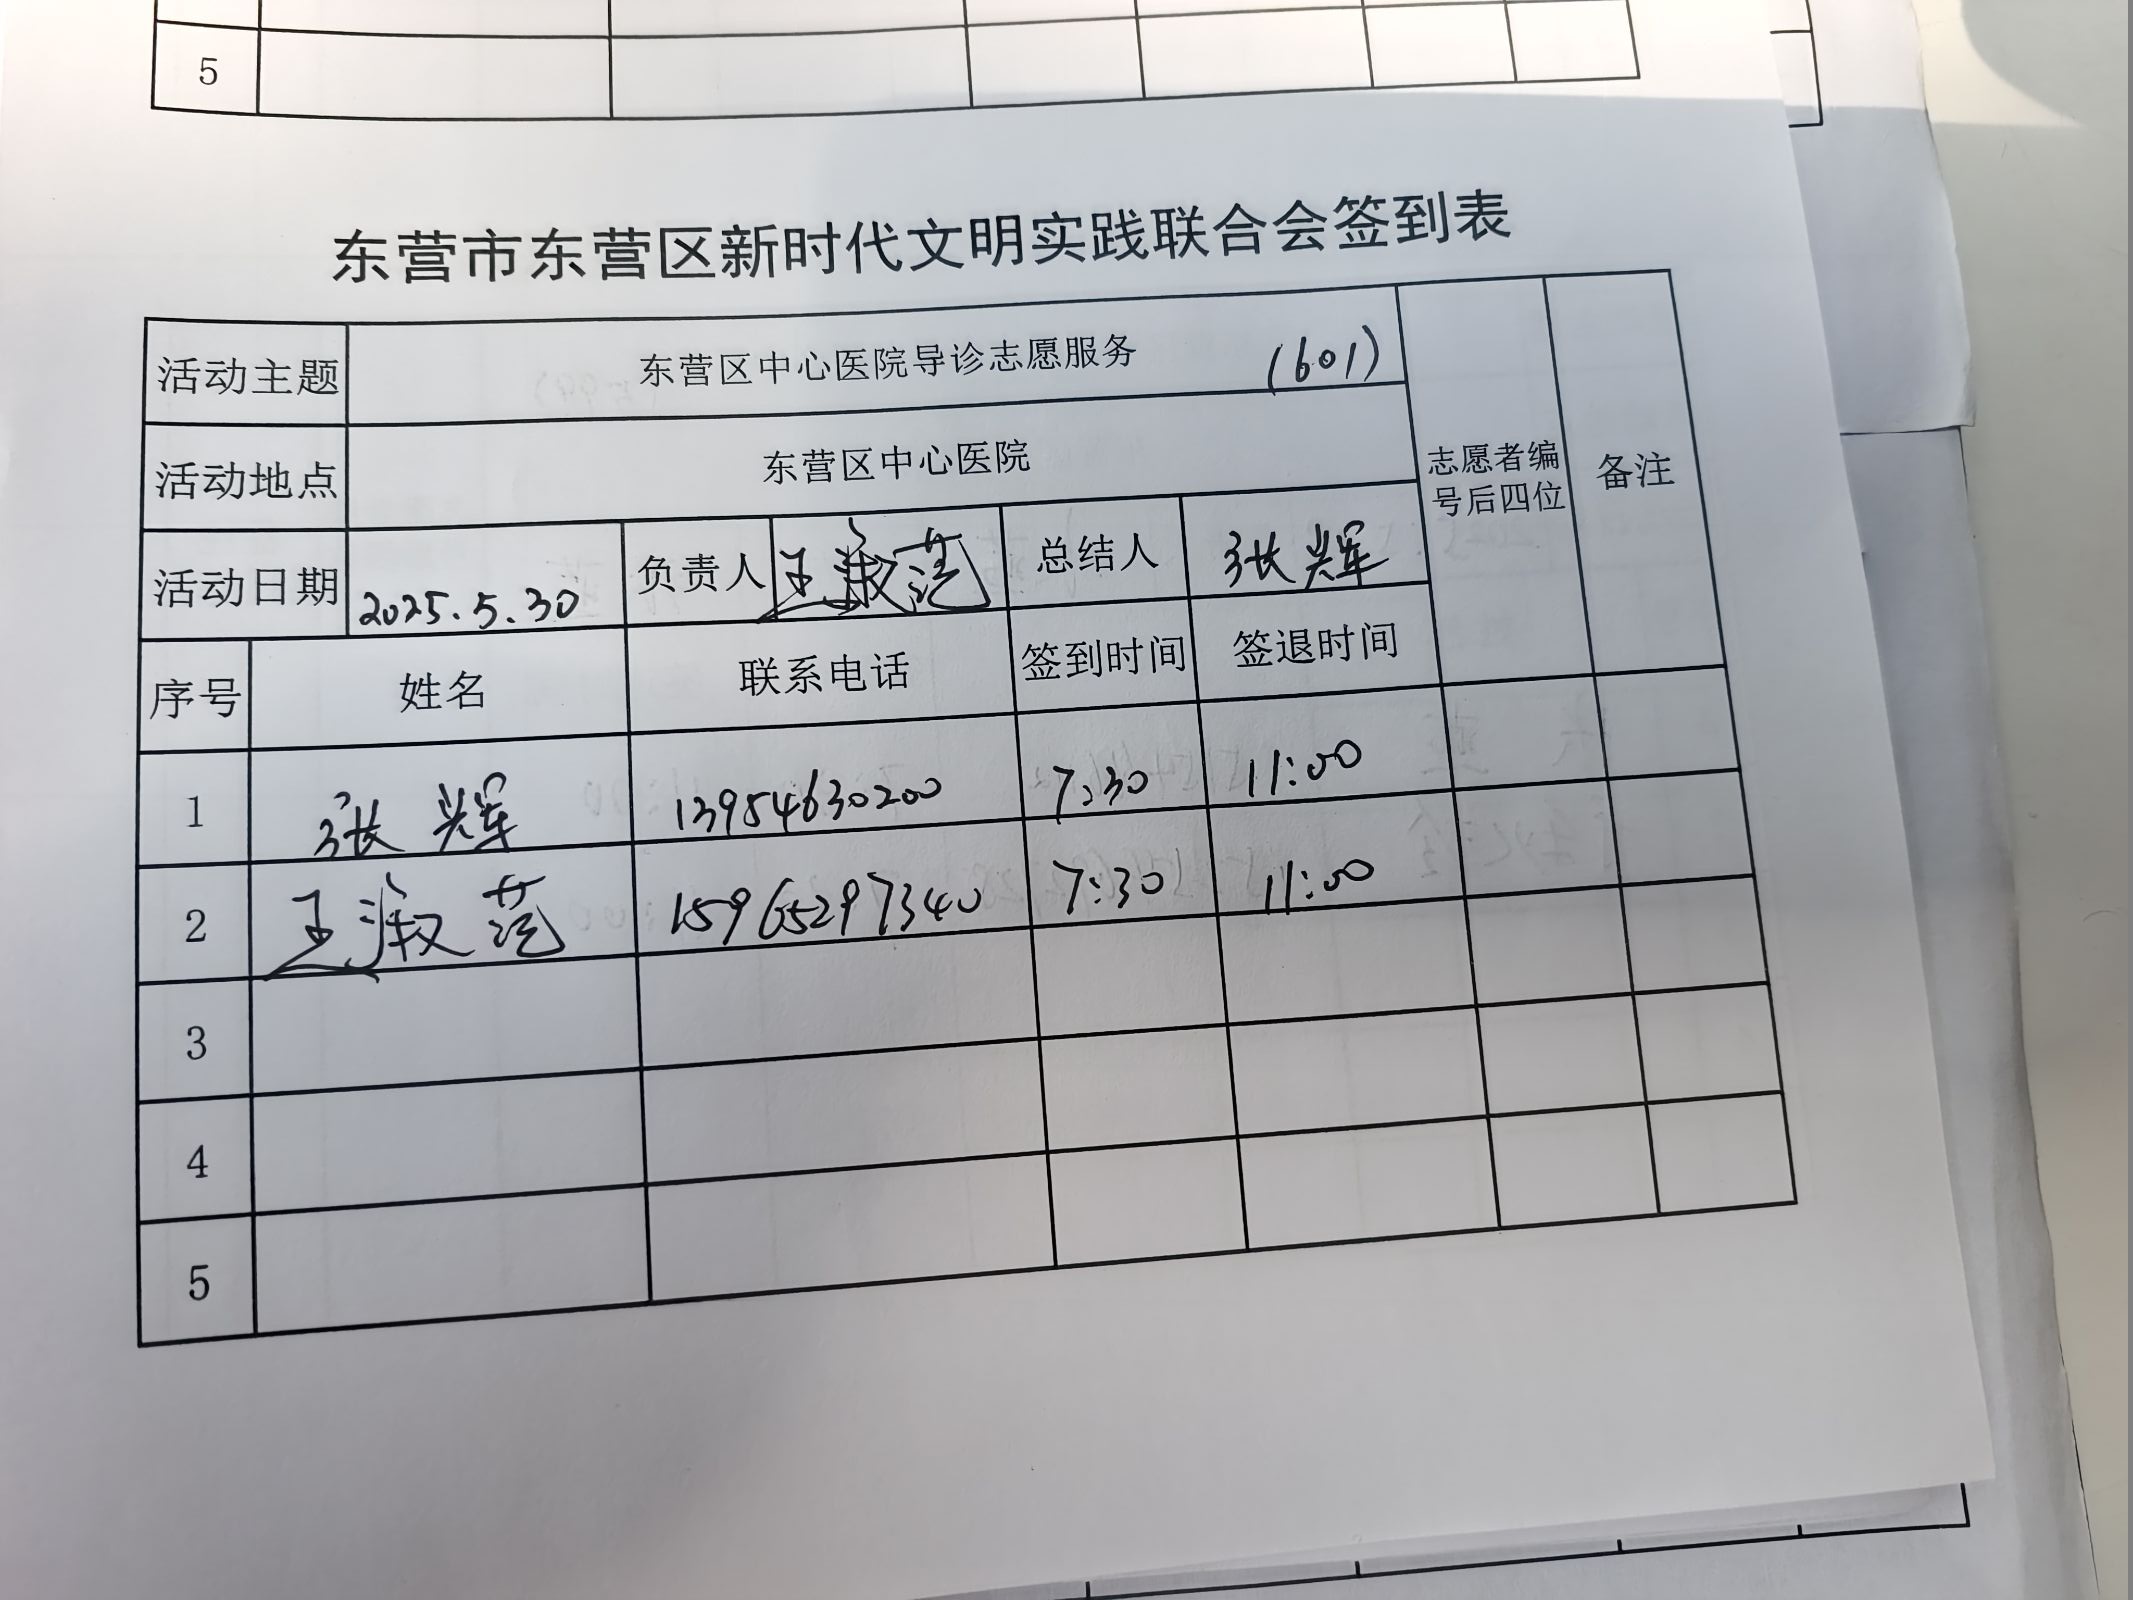 5
东营市东营区新时代文明实践联合会签到表
活动主题 东营区中心医院导诊志愿服务 (601)
活动地点 东营区中心医院 志愿者编号后四位 备注
活动日期 2025.5.30 负责人 王淑范 总结人 张辉
序号 姓名 联系电话 签到时间 签退时间
1 张辉 13954630200 7:30 11:00
2 王淑范 15965297340 7:30 11:00
3
4
5